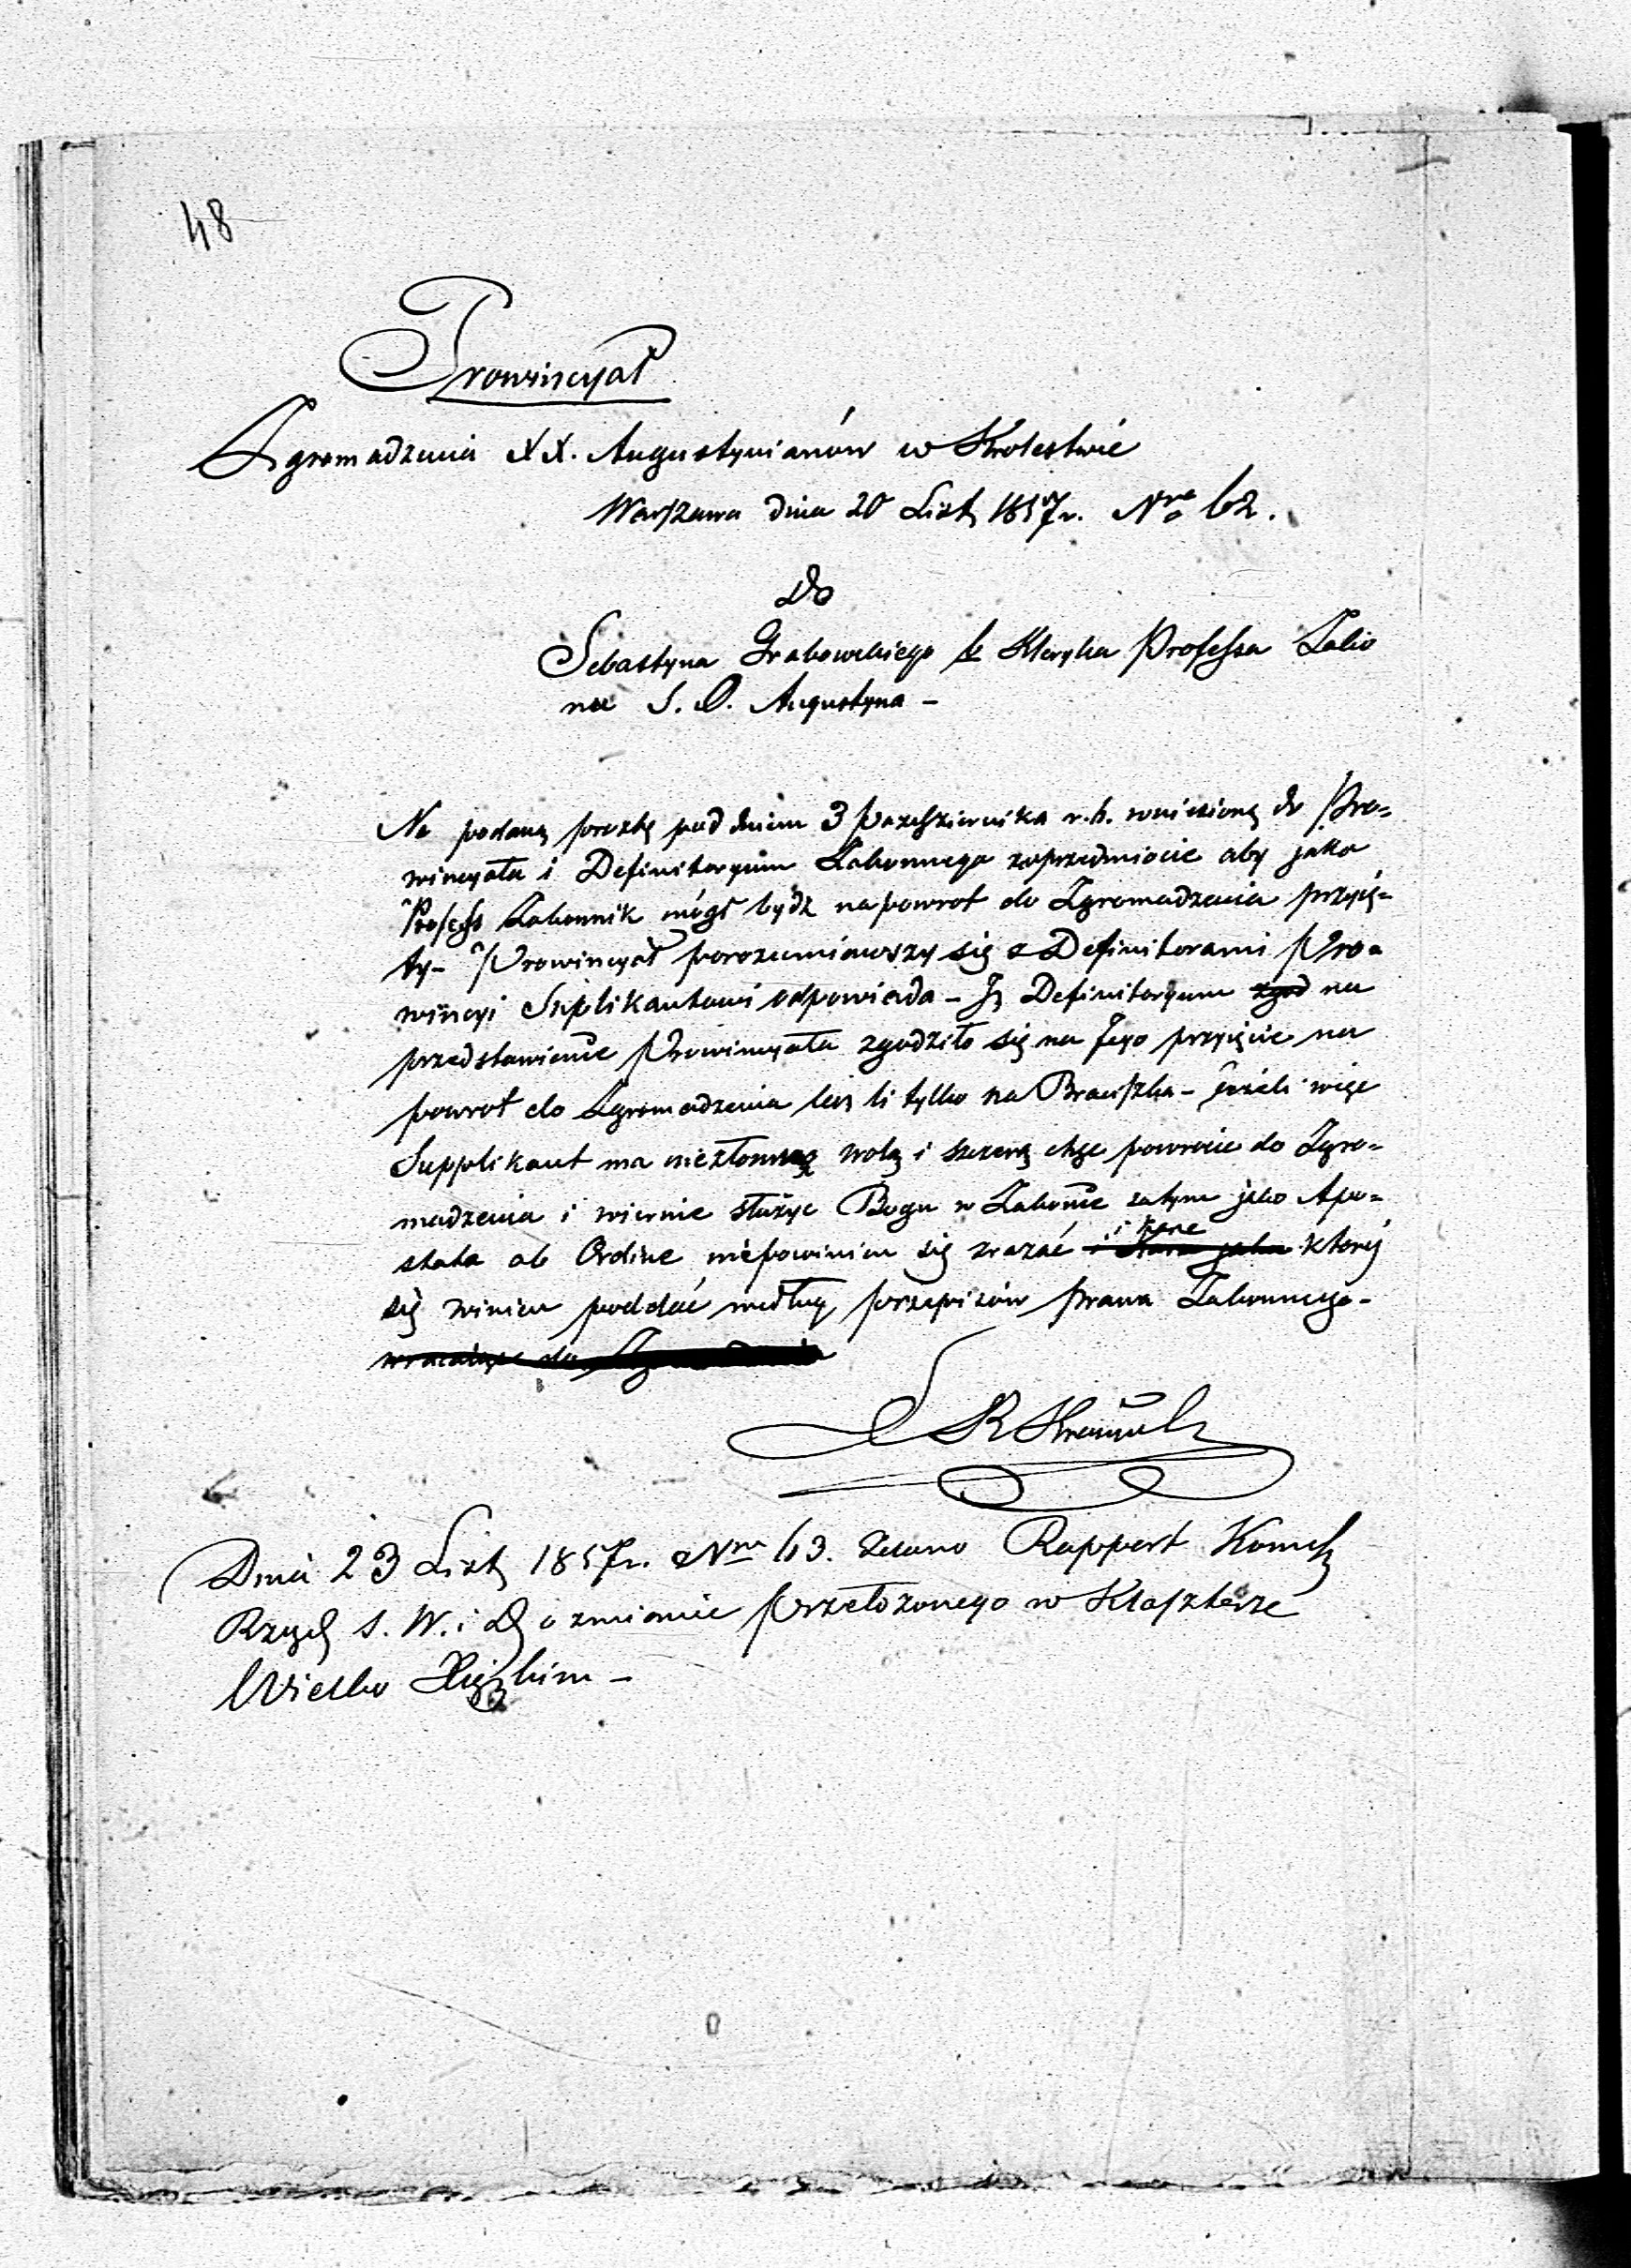 48
Prowincyał
Zgromadzenia XX. Augustyianów w Krolestwie
Warszawa dnia 20 List. 1857r. Nro 62.
Do
Sebastyna Grabowskiego Kleryka Professa Zako
nu S. O. Augustyna -
Na podaną prozbę pod dniem 3 Pazdziernika r.b. wniesioną do Pro=
wincyała i Definitoryum Zakonnego woprzedmiocie aby jako
Profess Zakonnik mógł bydź napowrot do Zgromadzenia przyię=
ty - Prowincyał porozumiawszy się z Definitorami Pro=
wincyi Suplikantowi odpowiada - Iż Definitoryum zgod na
przedstawienie Prowincyała zgodziło się na Jego przyięcie na
powrot do Zgromadzenia lecz li tylko na Braciszka - Jeżeli więc
Supplikant ma niezłomną wolę i szczerą chęć powrocie do Zgro=
madzenia i wiernie służyc Bogu w Zakonie zatym jako Apo=
stata ab Ordine niepowinien się zrazać i karę który
się winien poddać według przepisów prawa Zakonnego -
wracaiąc do
Dnia 23 List. 1857r. Nro 63. Rapport Komis.
Rząd. S. W. i D. o zmianie Przełożonego w Klasztorze
Wielko Xiążkim -